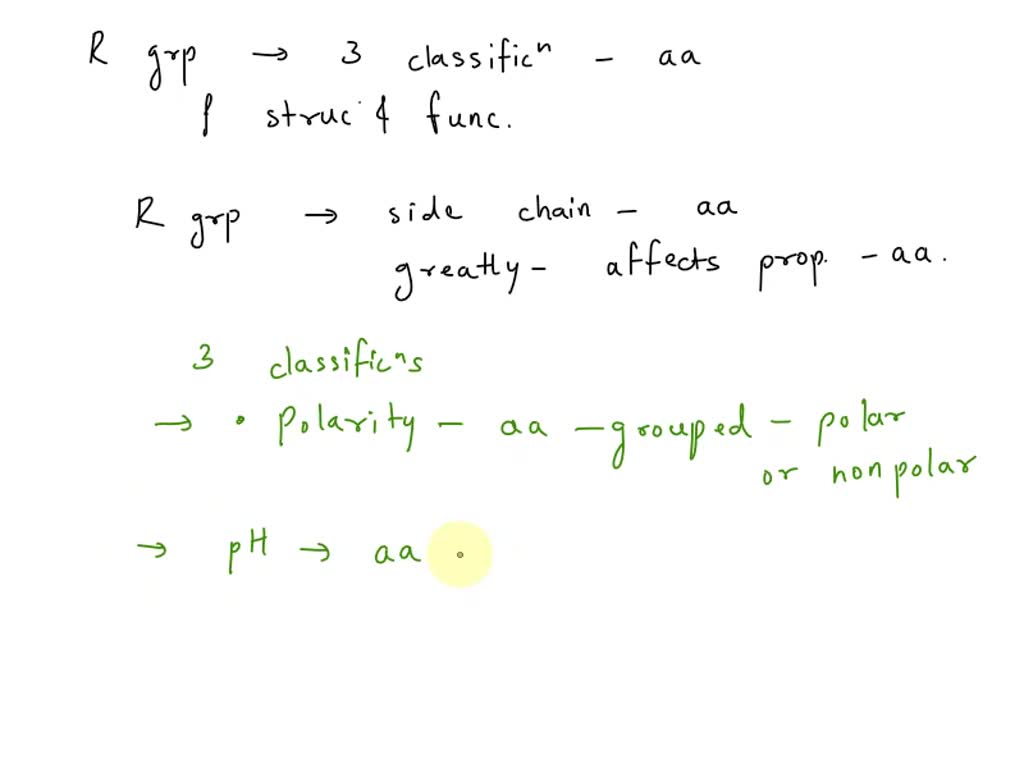 R grp → 3 classificⁿ - aa
struc & func.
R grp → side chain - aa
greatly - affects prop. - aa.
3 classificⁿs
→ • Polarity - aa - grouped - polar
or nonpolar
→ pH → aa